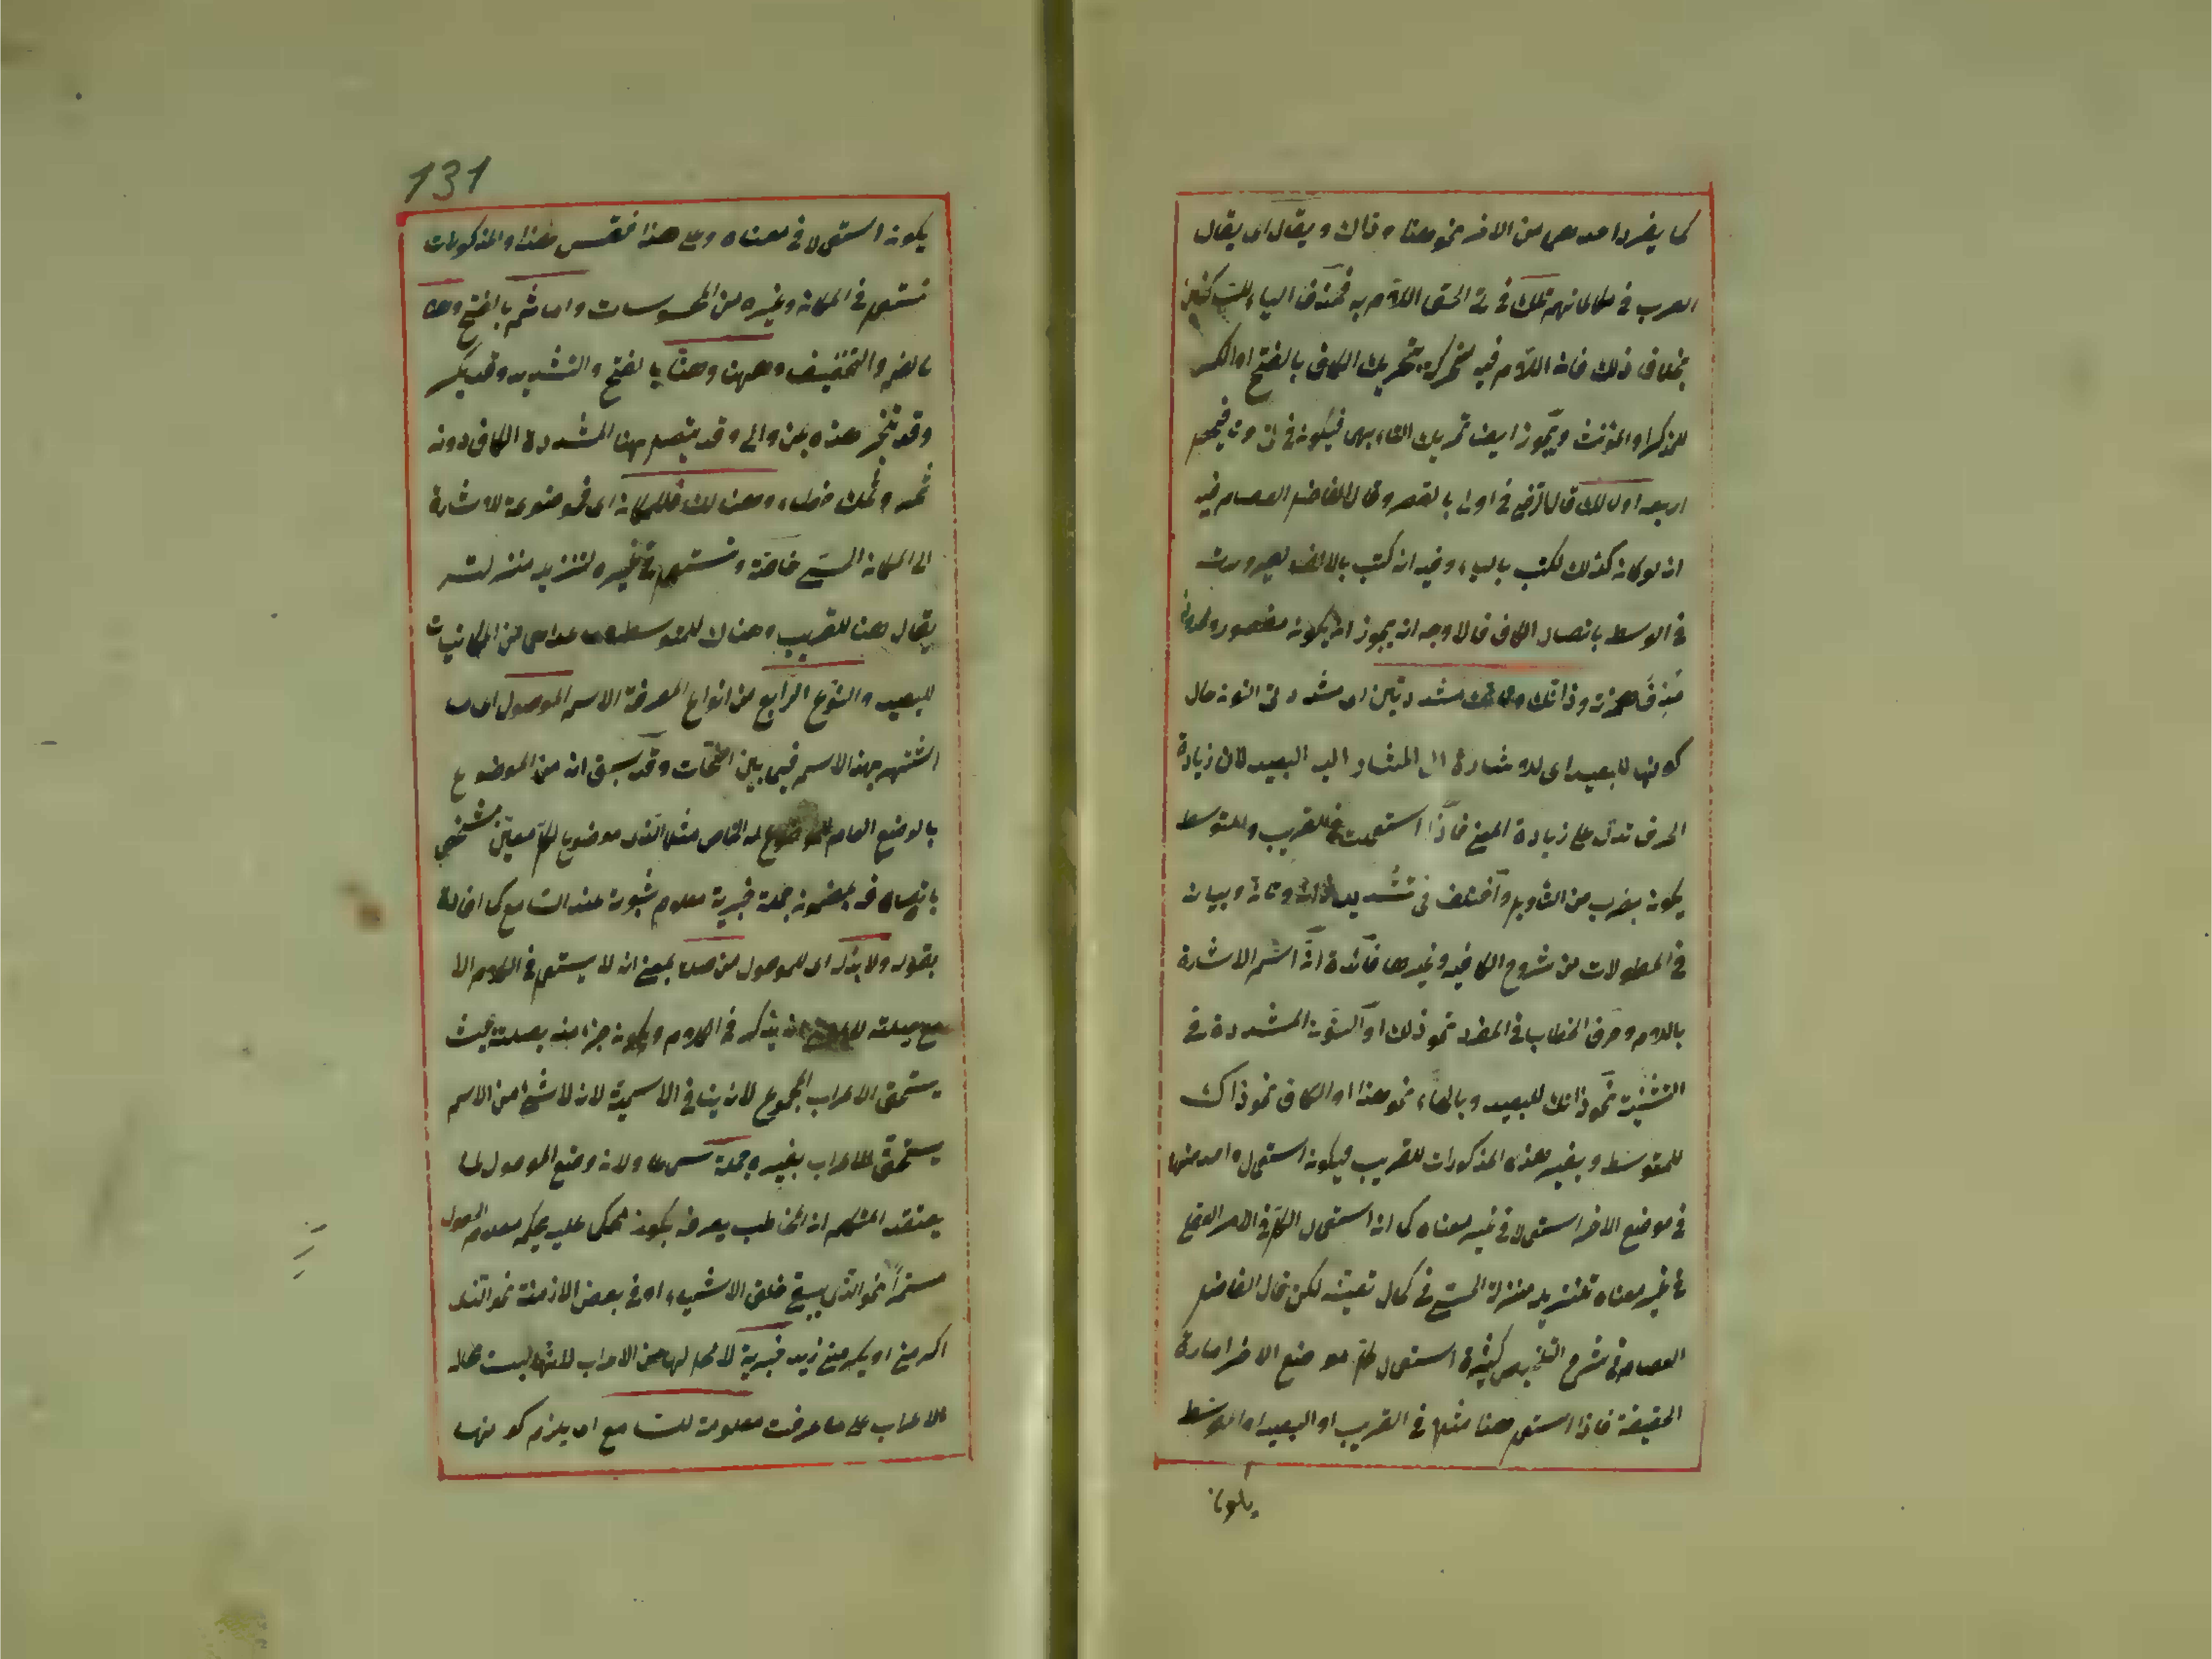 كما يفرد احدهما من الاخر نحو هنا وذاك ويقال اى يقال
العرب فى تلك فى تى الحق اللام به فحذف الياء للساكنين
بخلاف ذلك فان اللام فيه متحركة تحريك الكاف بالفتح او الكسر
للمذكر او المؤنث ويجوز ايضا تحريك الهاء بهما فيكون فى
اربعة اولالك قال الرضى فى اولى بالقصر وقال الفاضل العصام فيه
انه لو كان كذلك لكتب بالياء وفيه انه كتب بالالف لصيرورته
فى الوسط باتصال الكاف فالاوجه انه يجوز ان يكون مقصور
حذف همزته وذانك وتانك مشددتين اى مشددتى النون حال
كونها للبعيد اى للاشارة الى المشار اليه البعيد لان زيادة
الحرف تدل على زيادة المعنى فاذا استعملت فى القريب وللمتوسط
يكون بضرب من التأويل واختلف فى تشديد ذان وتان وبيانه
فى المطولات من شروح الكافية وغيرها فائدة ان اسم الاشارة
باللام وحرف الخطاب فى المفرد نحو ذلك او النون المشددة فى
التثنية نحو ذانك للبعيد وبالهاء نحو هذا او الكاف نحو ذاك
للمتوسط وبغير هذه المذكورات للقريب فيكون استعمال واحد منها
فى موضع الاخر استعمالا فى غير معناه كما ان استعمال الكل فى الامر العقلى
فى غير معناه تنزيله منزلة الحسى فى كمال تعينه لكن قال الفاضل
العصام فى شرح التلخيص كثرة استعمال كل موضع الاخر امارة
الحقيقة فاذا استعمل هنا مثلا فى القريب او البعيد او المتوسط
يكون
131
يكون استعمالا فى معناه وعلى هذا فقس هذا والمذكورات
تستعمل فى المكان وغيره من المحسوسات واما ثم بالفتح وهنا
بالضم والتخفيف وههنا وهنا بالفتح والتشديد وقد يكسر
وقد تنجر هذه بمن والى وقد يتصل بهنا المشددة الكاف دون
ثمه وثمك خطاء وهنالك فللمكان اى فموضوعة للاشارة
الى المكان الحسى خاصة وتستعمل فى غيره لتنزيله منزلته
يقال هنا للقريب وهناك للمتوسط وما عداهما من المكانيات
للبعيد والنوع الرابع من انواع المعرفة الاسم الموصول اى ما
اشتهر بهذا الاسم فيما بين النحات وقد سبق انه من الموضوع
بالوضع العام للموضوع له الخاص مثلا الذى موضوع لكل معين مشخص
باتصافه بمضمون جملة خبرية معلوم ثبوته عند السامع كما افاده
بقوله ولا بد له اى للموصول من صلة بمعنى انه لا يستعمل فى الكلام الا
مع صلته يذكر فى الكلام ويكون جزأ منه بصلته بحيث
يستحق الاعراب المجموع لانه ينافى الاسمية لانه لا شئ من الاسم
يستحق الاعراب بغيره جملة ولانه وضع الموصول لما
يعتقد المتكلم ان المخاطب يعرفه بكونه محكوما عليه بحكم معلوم الحصول
مستمرا نحو الذى يبقى خلق الاشياء او فى بعض الازمنة نحو الذى
اكرمنى او يكرمنى زيد خبرية لا محل لها من الاعراب لانها ليست
الاعراب على ما عرفت معلومة للسامع اى يلزم كونها